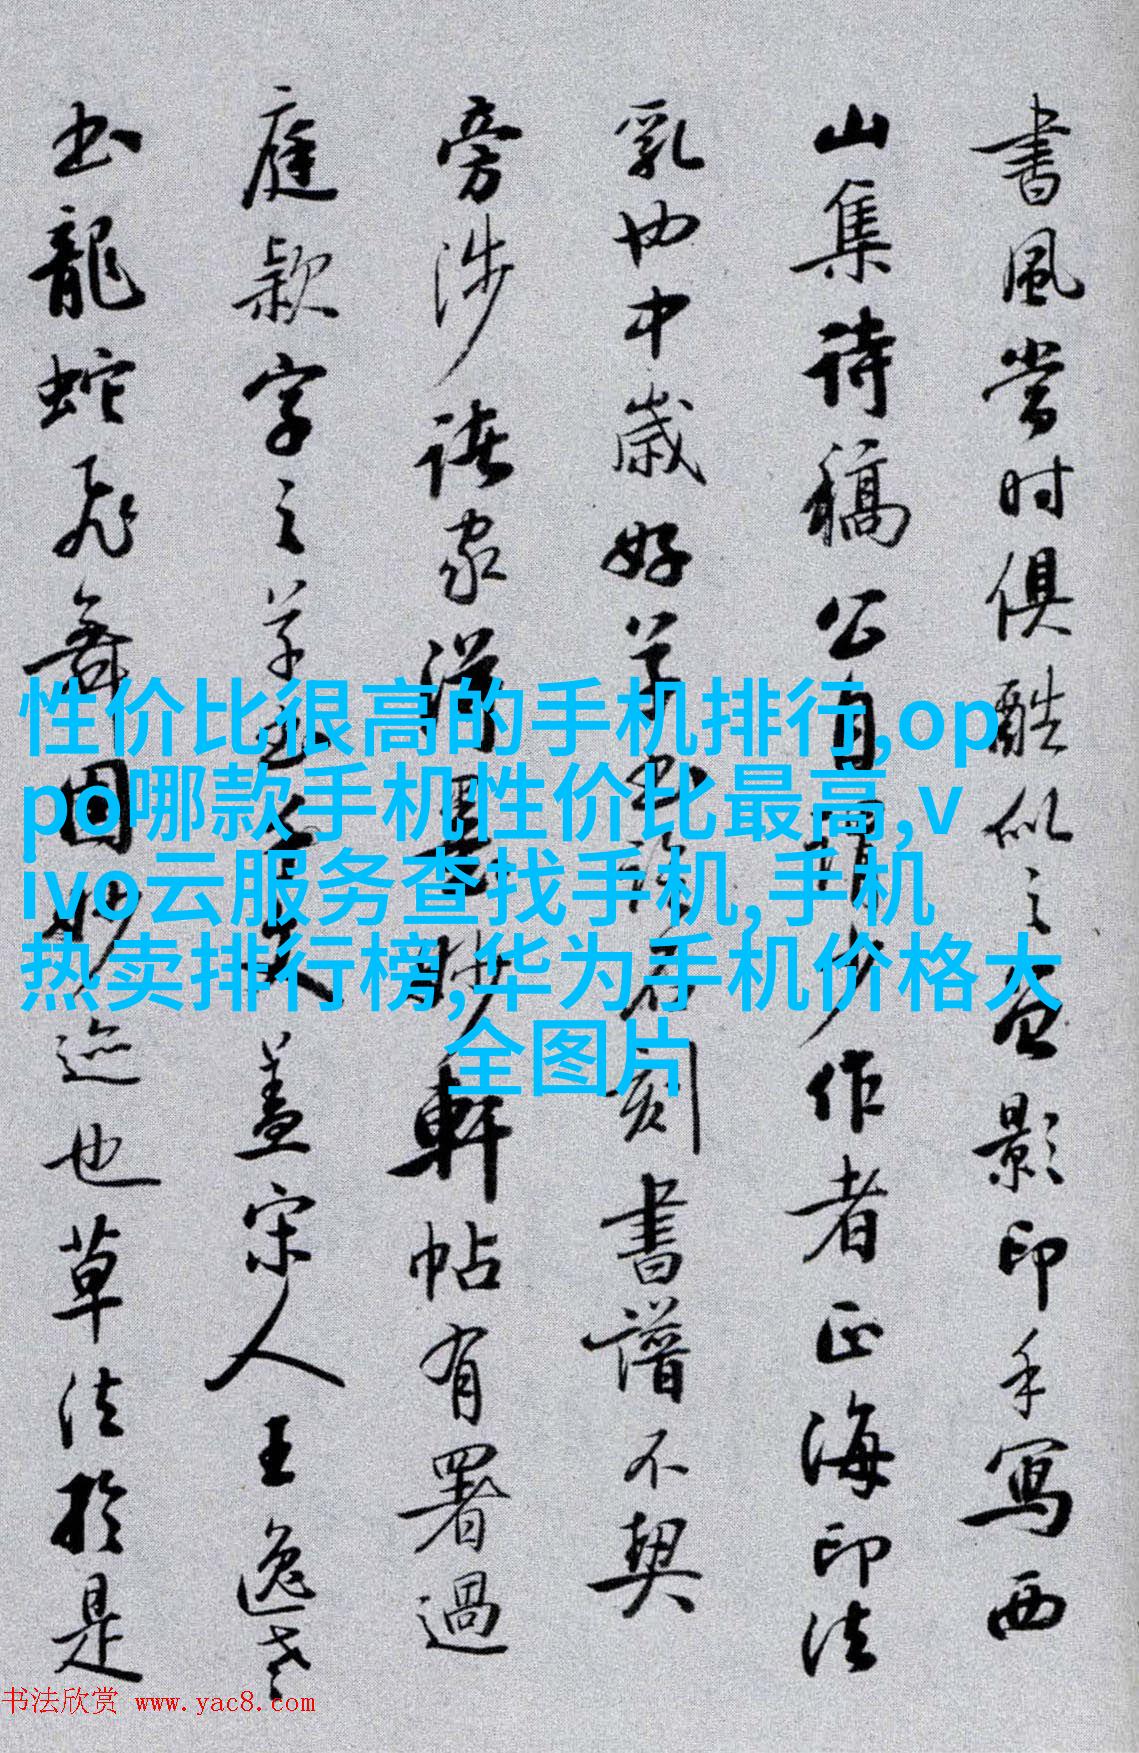 書風當时俱酷似之又影印手写西
山集诗稿公自谓少作者正海印法
乳也中歲好草书诸石刻書譜不契
旁涉諸家漢墨眇軒帖有署過
庭款字之草
盖宋人王逸老
书龍蛇飛舞固妙迹也草法於是
性价比很高的手机排行,op
po哪款手机性价比最高,v
ivo云服务查找手机,手机
热卖排行榜,华为手机价格大
全图片
书法欣赏 www.yac8.com